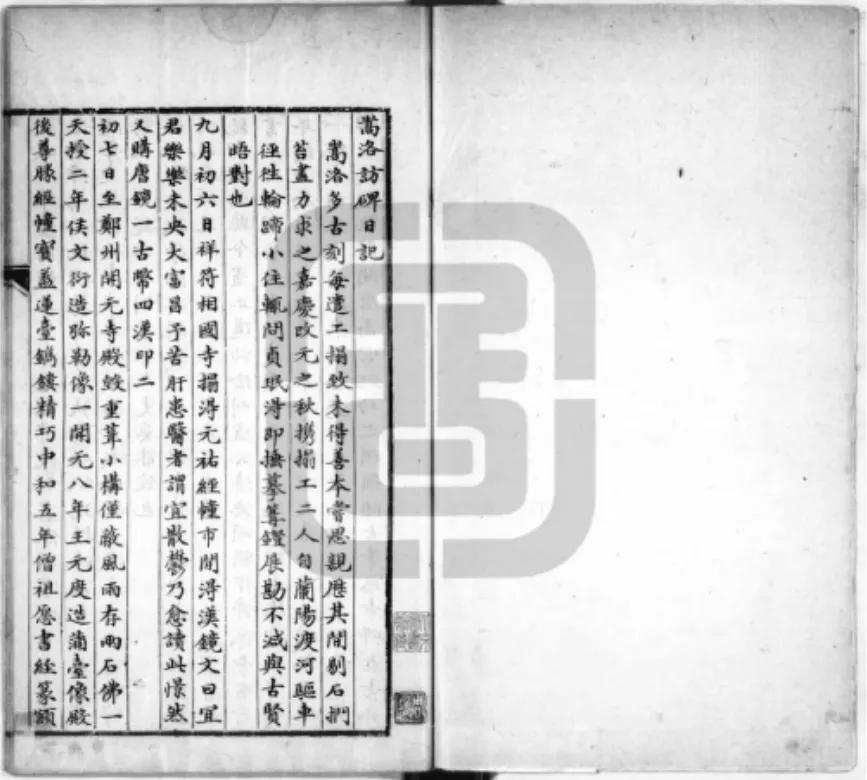 嵩洛訪碑日記
嵩洛多古刻每遣工搨致未得善本嘗思親歷其間剔石捫
苔盡力求之嘉慶改元之秋携搨工二人自蘭陽渡河驅車
徑往輪蹄小住輒問貞珉得即撫摹篝鐙展勘不減與古賢
晤對也
九月初六日祥符相國寺搨得元祐經幢市間得漢鏡文曰宜
君樂樂未央大富昌予苦肝患醫者謂宜散鬱乃愈讀此憬然
又購唐鏡一古幣四漢印二
初七日至鄭州開元寺殿毀重葺小構僅蔽風雨存兩石佛一
天授二年侯文衍造弥勒像一開元八年王元度造蒲臺像殿
後尊勝經幢寶蓋蓮臺鐫鏤精巧中和五年僧祖愿書經篆額